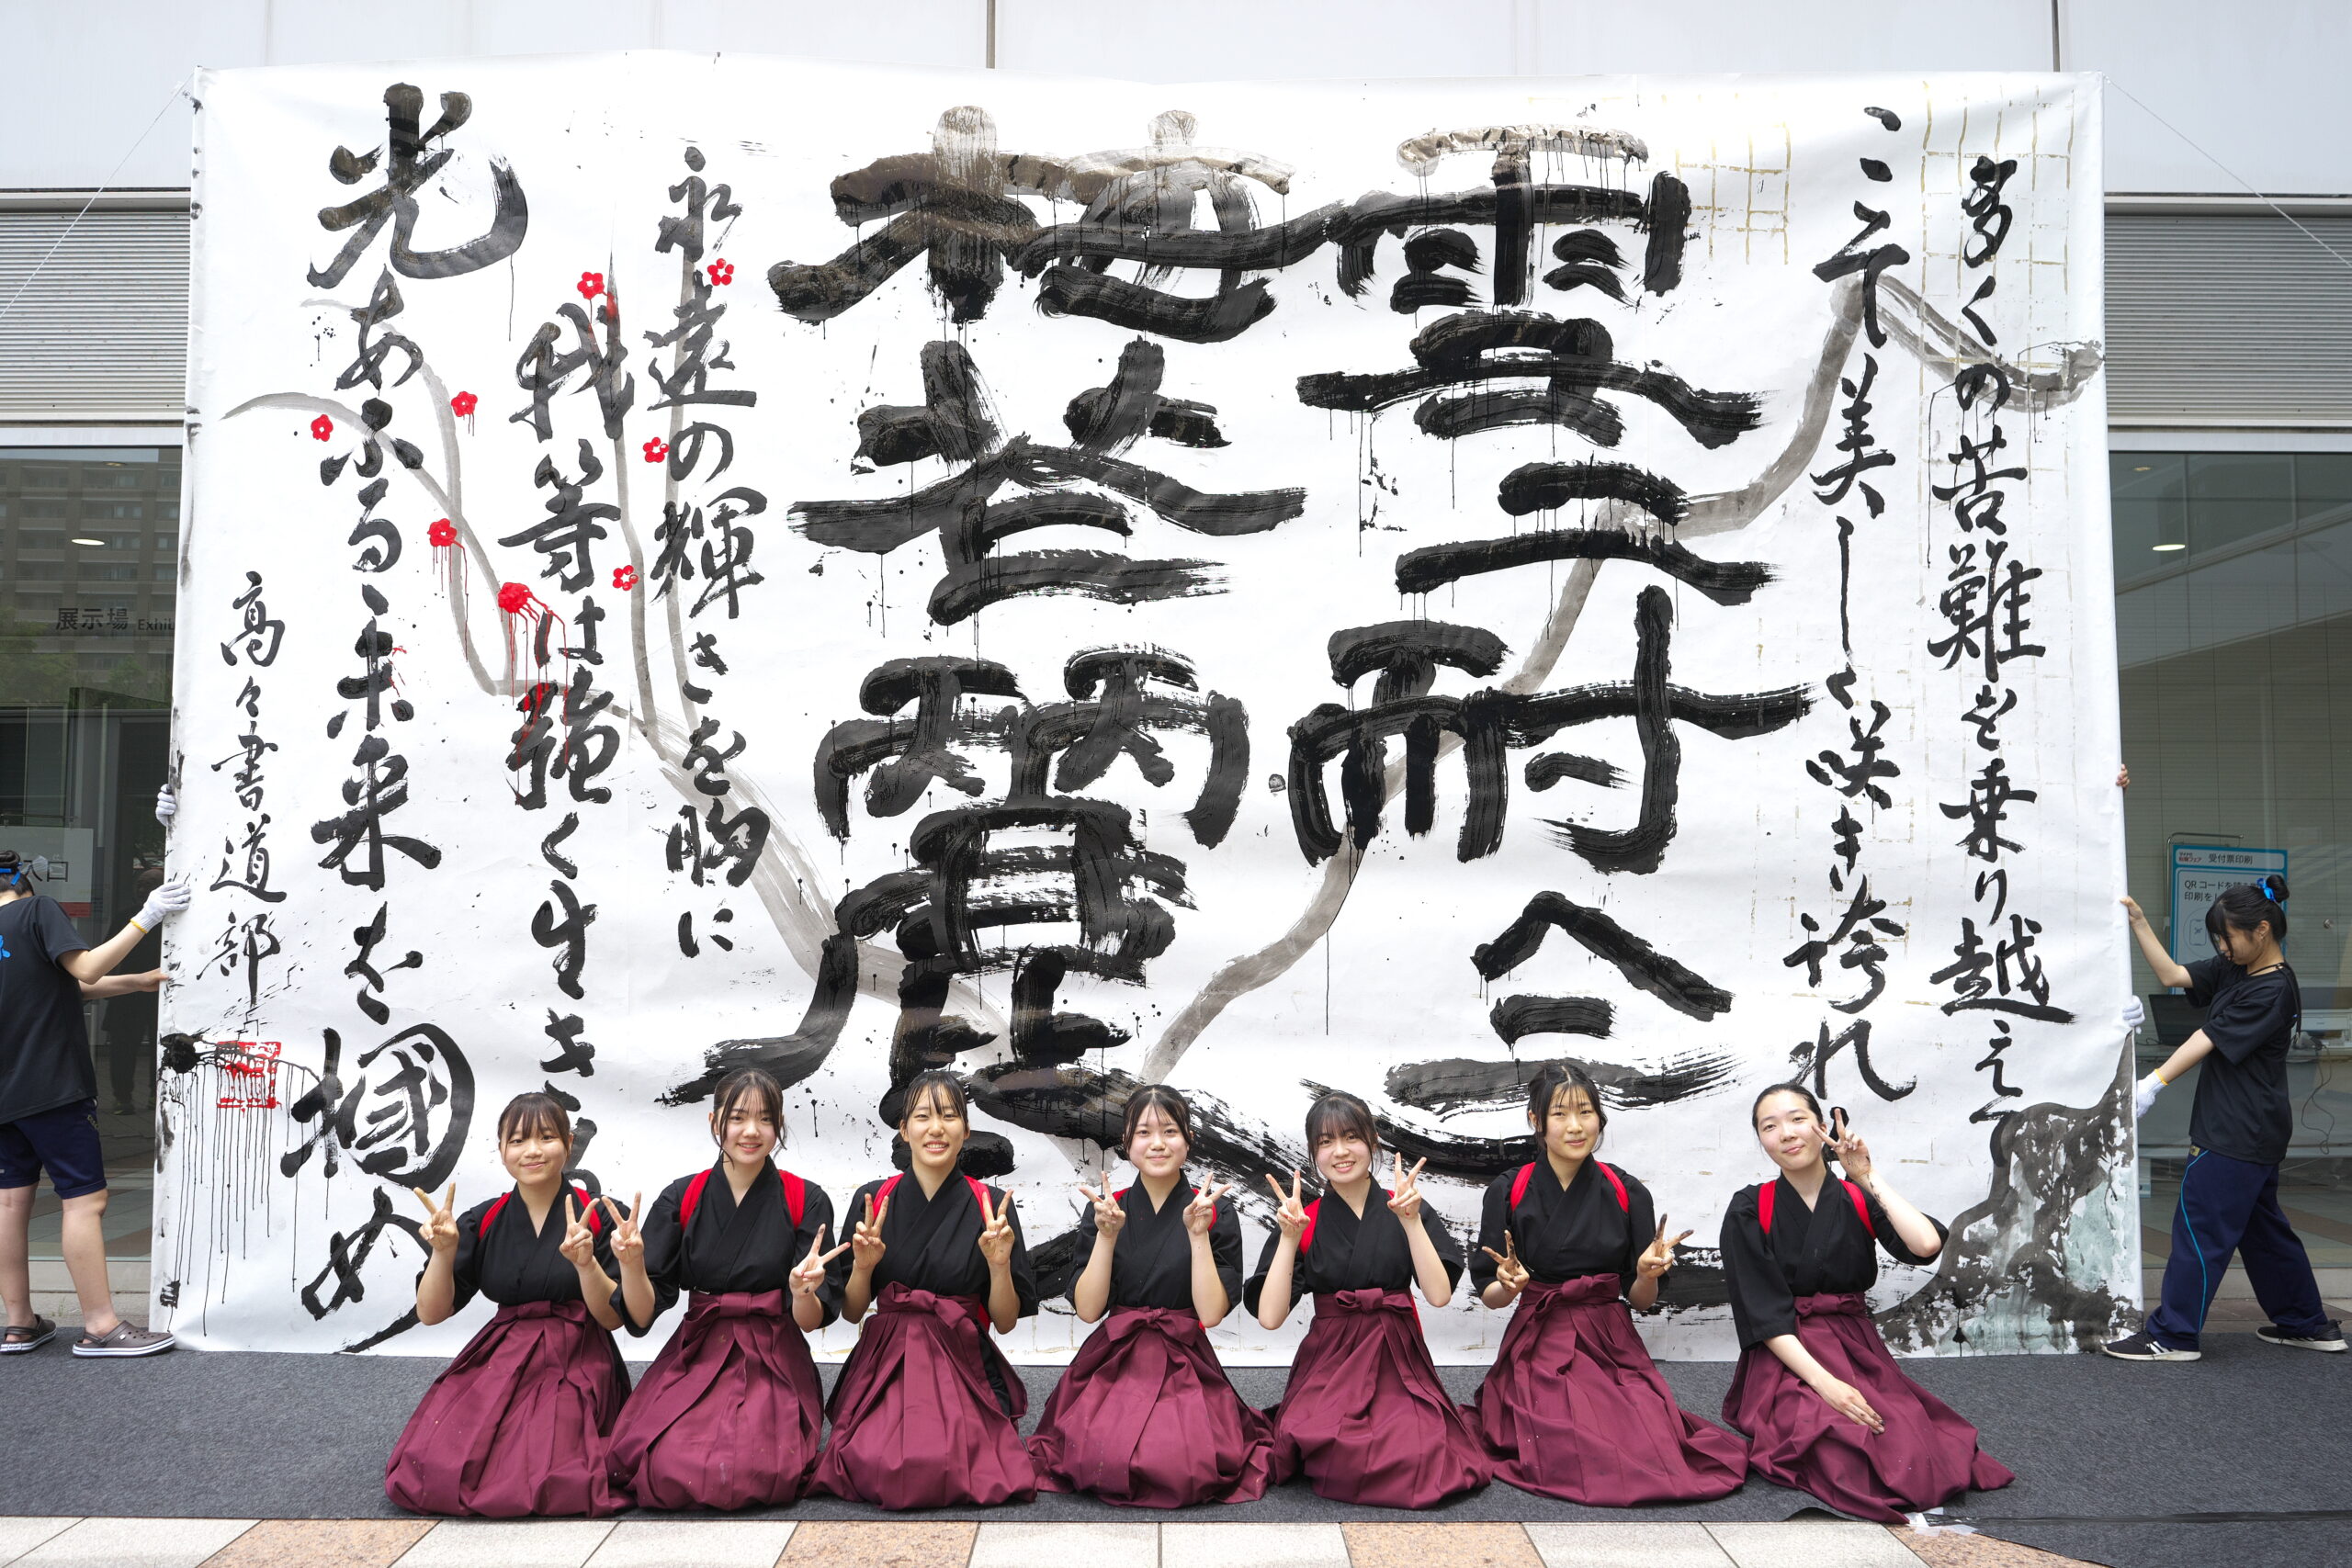 多くの苦難を乗り越えて
ここで美しく咲き誇れ
雪ニ耐ヘテ
梅花麗
永遠の輝きを胸に
我等は強く生きる
光あふるゝ未来を掴め
高々書道部
展示場
受付票印刷
QRコードを